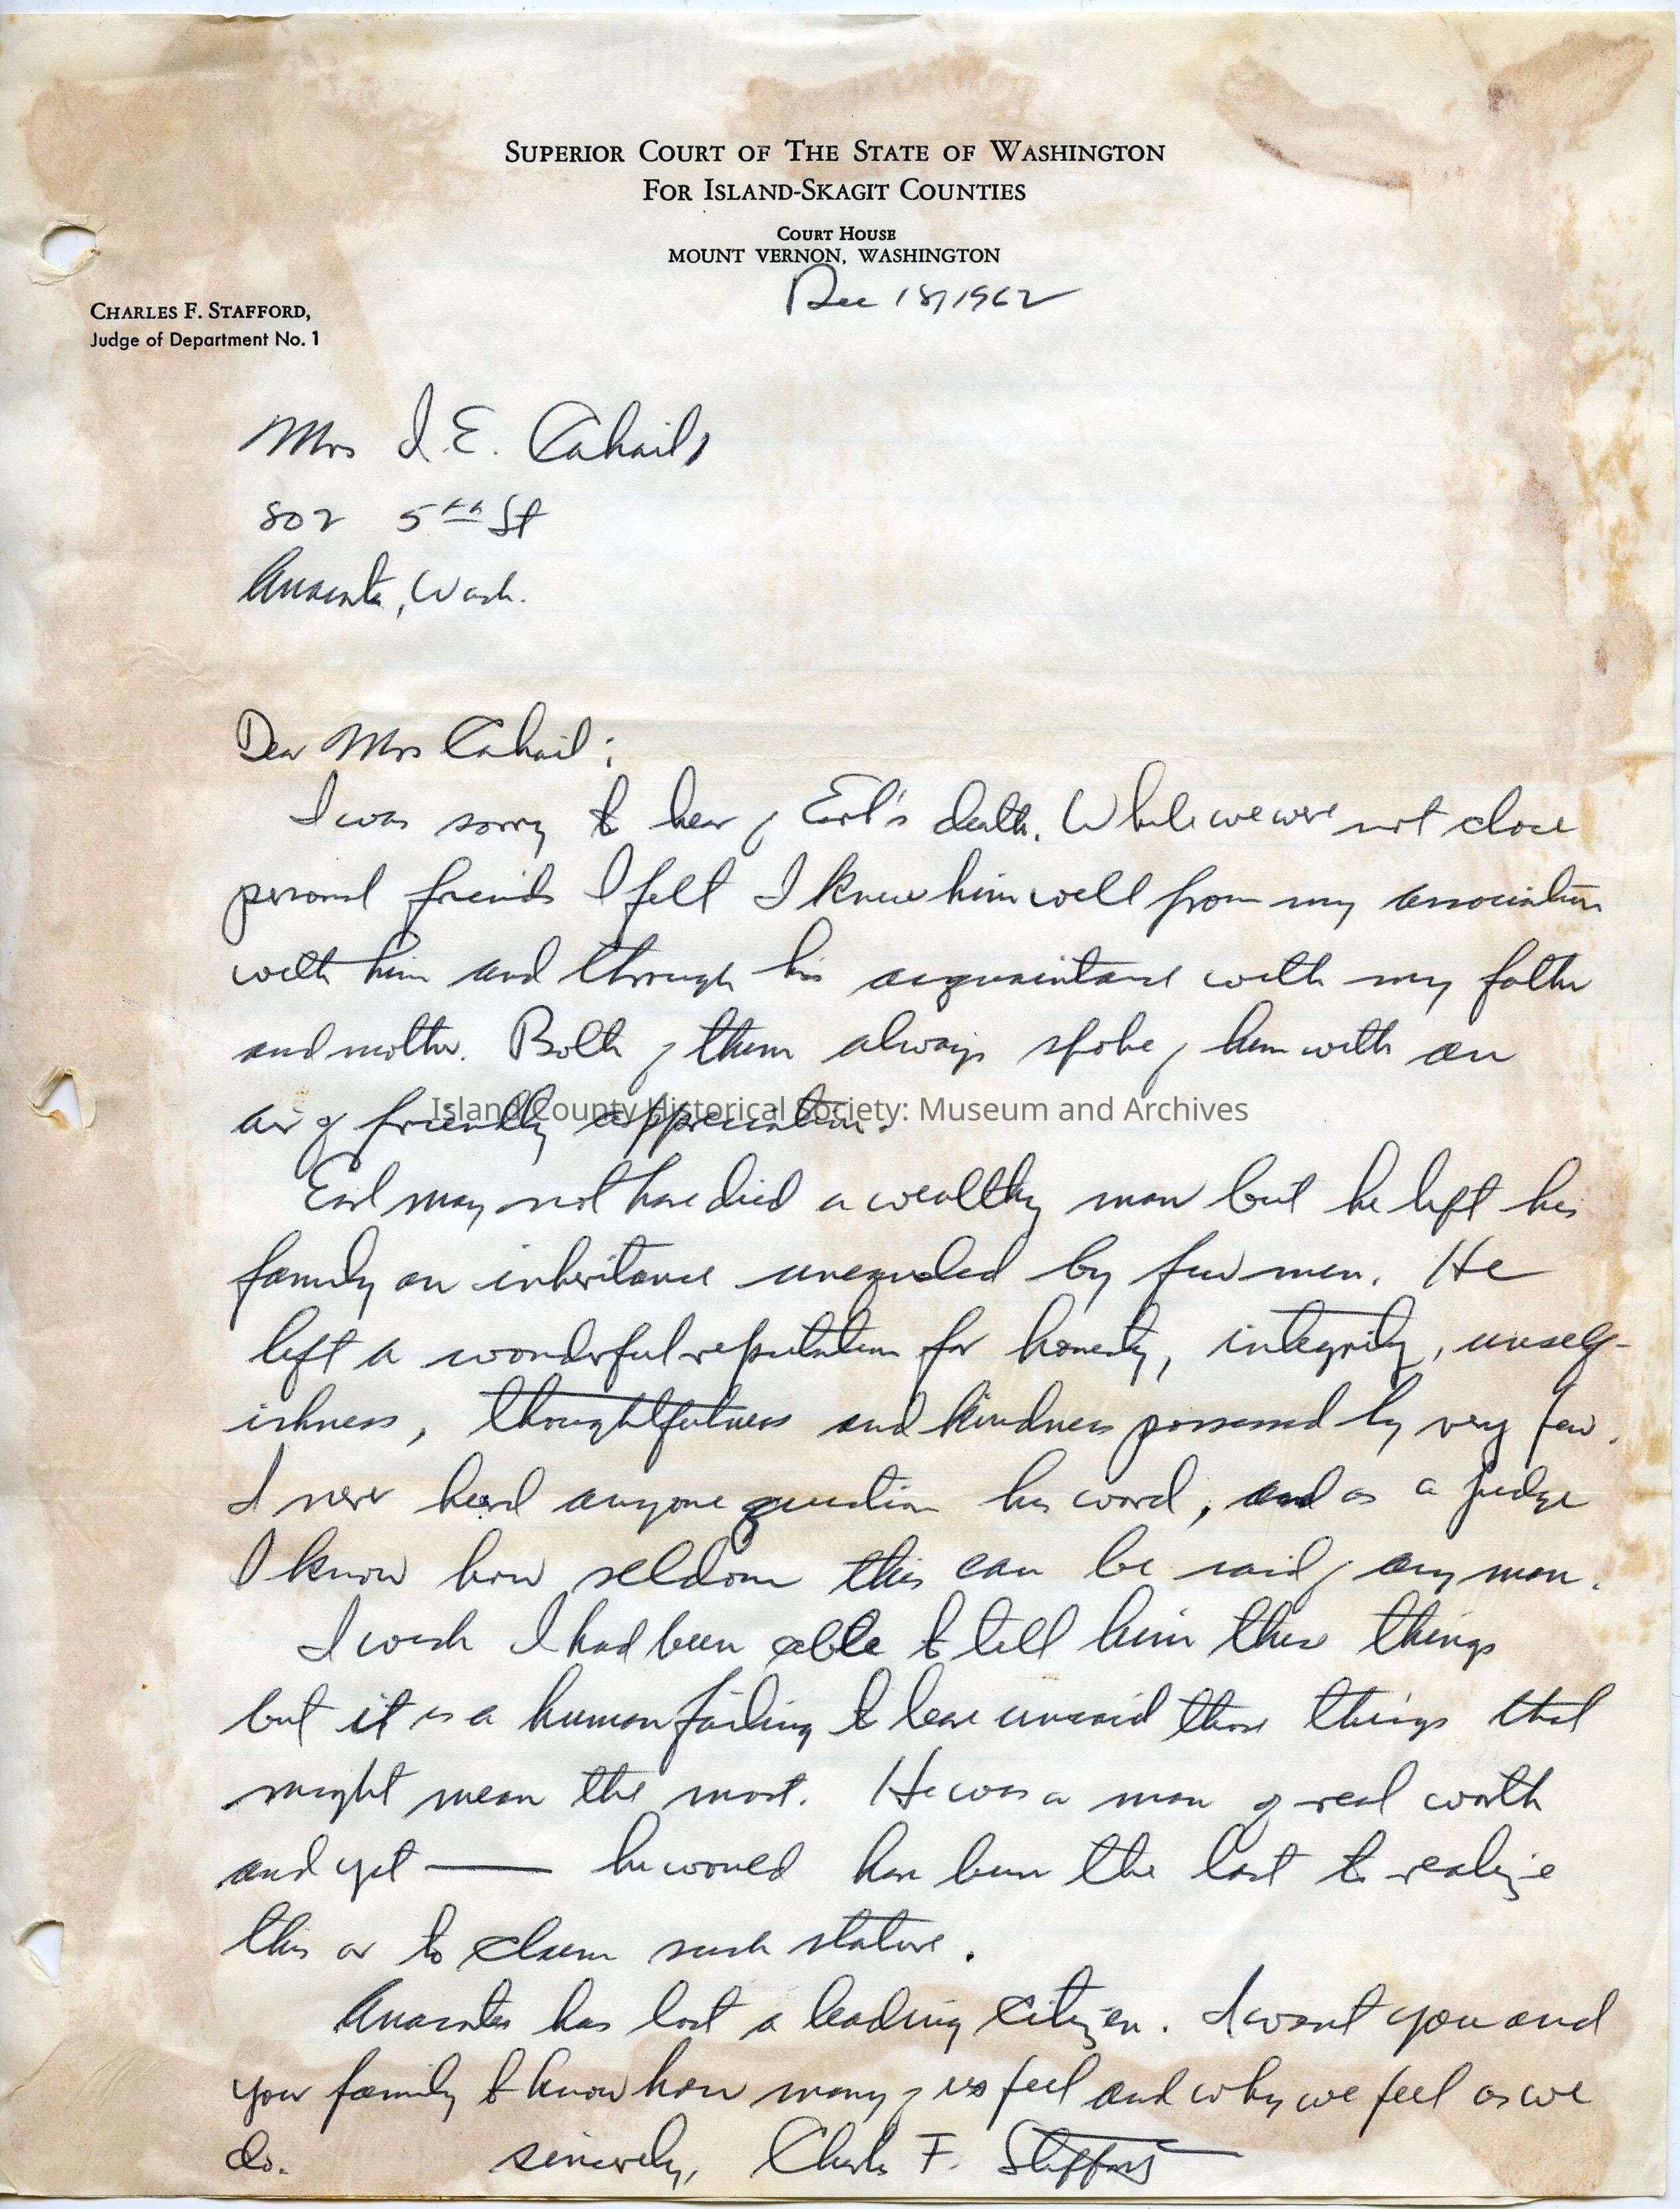 SUPERIOR COURT OF THE STATE OF WASHINGTON
FOR ISLAND-SKAGIT COUNTIES
COURT HOUSE
MOUNT VERNON, WASHINGTON
Dec 18, 1962
CHARLES F. STAFFORD,
Judge of Department No. 1
Mrs I. E. Cahail,
802 5th St
Anacortes, Wash.
Dear Mrs Cahail:
I was sorry to hear of Earl's death. While we were not close
personal friends I felt I knew him well from my association
with him and through his acquaintance with my father
and mother. Both of them always spoke of him with an
air of friendly appreciation.
Island County Historical Society: Museum and Archives
Earl may not have died a wealthy man but he left his
family an inheritance unequaled by few men. He
left a wonderful reputation for honesty, integrity, unself-
ishness, thoughtfulness and kindness possessed by very few.
I never heard anyone question his word, and as a judge
I know how seldom this can be said of any man.
I wish I had been able to tell him these things
but it is a human failing to leave unsaid those things that
might mean the most. He was a man of real worth
and yet — he would have been the last to realize
this or to claim such stature.
Anacortes has lost a leading citizen. I want you and
your family to know how many of us feel and why we feel as we
do. Sincerely, Charles F. Stafford